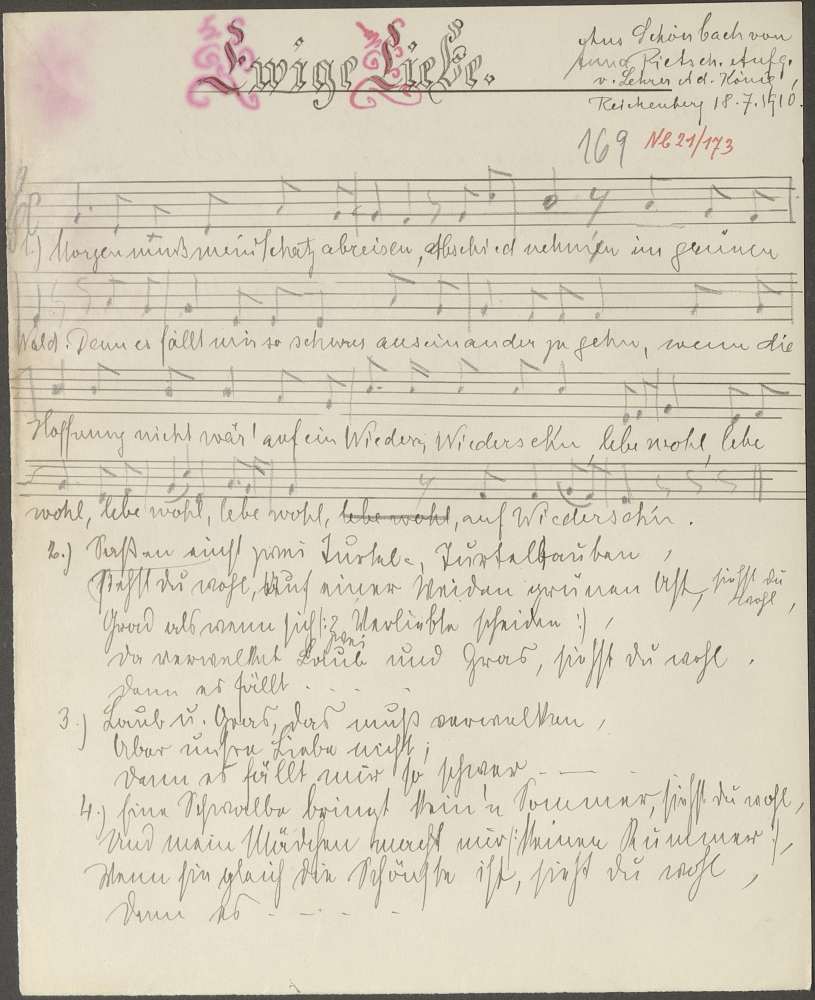 Ewige Liebe.
Aus Schönbach von
Anna Rietsch. Aufg.
v. Lehrer Ad. König,
Reichenberg 18.7.1910.
169 Nl 21/173
1.) Morgen muß mein Schatz abreisen, Abschied nehmen im grünen
Wald. Denn es fällt mir so schwer auseinander zu gehn, wenn die
Hoffnung nicht wär! auf ein Wieder, Wiedersehn, lebe wohl, lebe
wohl, lebe wohl, lebe wohl, lebe wohl, auf Wiedersehn.
2.) Saßen einst zwei Turtel-, Turteltauben,
Siehst du wohl, Auf einer Weiden grünen Ast, siehst du
wohl,
Grad als wenn sich |: 2 Verliebte scheiden :|,
zwei
Da verwelket Laub und Gras, siehst du wohl.
Denn es fällt . . . .
3.) Laub u. Gras, das muß verwelken,
Aber unsre Liebe nicht;
Denn es fällt mir so schwer . — .
4.) Eine Schwalbe bringt kein'n Sommer, siehst du wohl,
Und mein Mädchen macht mir |: keinen Kummer :|,
Wenn sie gleich die Schönste ist, siehst du wohl,
Denn es - . - . -